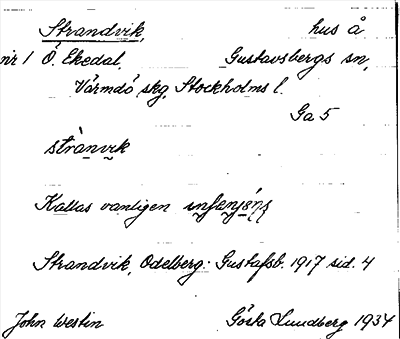 Strandvik, hus å
nr 1 Ö. Ekedal, Gustavsbergs sn,
Värmdö skg, Stockholms l.
Ga 5
strànvik
Kallas vanligen
Strandvik, Odelberg: Gustafsb. 1917 sid. 4
John Westin Gösta Lundberg 1934